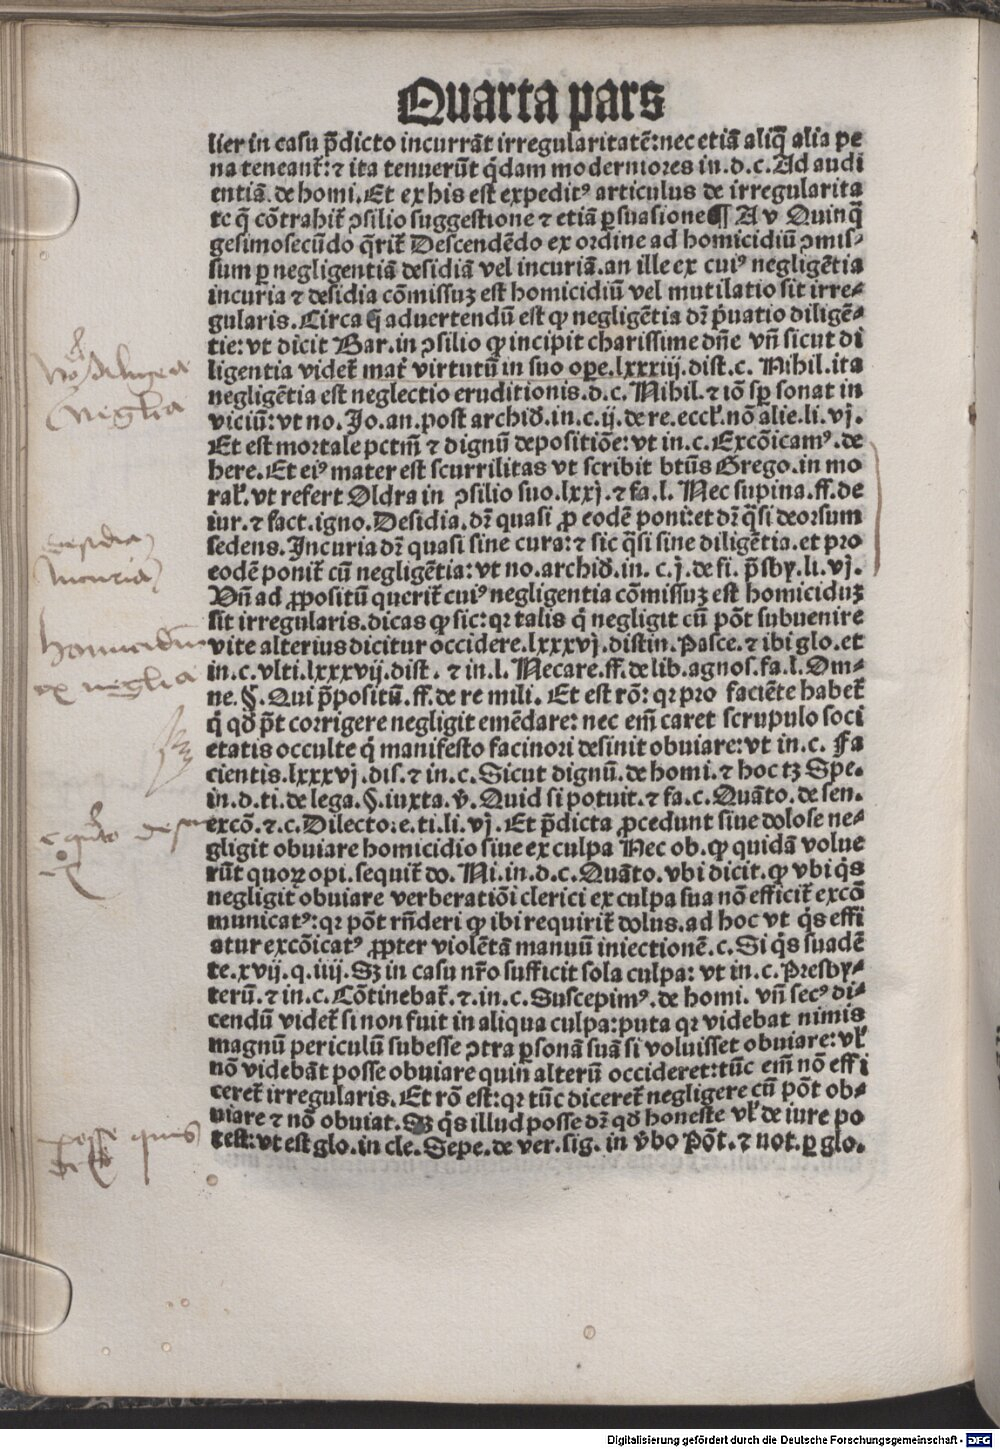 Quarta pars
lier in casu p̄dicto incurrāt irregularitatē: nec etiā aliq̄ alia pe
na teneant̄: ⁊ ita tenuerūt q̇dam moderniores in .d.c. Ad audi
entiā. de homi. Et ex his est expeditꝰ articulus de irregularita
te q̄ cōtrahit̄ ꝯsilio suggestione ⁊ etiā ꝑsuasione ¶ A v Quinq̄
gesimosecūdo q̄rit̄ Descendēdo ex ordine ad homicidiū ꝯmis⸗
sum ꝑ negligentiā desidiā vel incuriā. an ille ex cuiꝰ negligētia
incuria ⁊ desidia cōmissuꝫ est homicidiū vel mutilatio sit irre⸗
gularis. Circa q̄ aduertendū est ꝙ negligētia dr̄ p̄uatio diligē⸗
tie: vt dicit Bar. in ꝯsilio ꝙ incipit charissime dn̄e vn̄ sicut di
ligentia videt̄ mat̄ virtutū in suo ope. lxxxiij. dist. c. Nihil. ita
negligētia est neglectio eruditionis. d.c. Nihil. ⁊ iō sꝑ sonat in
viciū: vt no. Jo. an. post archiđ. in. c. ij. de re. eccł. nō alie. li. vj.
Et est mortale pctm̄ ⁊ dignū depositiōe: vt in. c. Excōicamꝰ. de
here. Et eiꝰ mater est scurrilitas vt scribit btūs Grego. in mo
rał. vt refert Oldra in ꝯsilio suo. lxxj. ⁊ fa. l. Nec supina. ff. de
iur. ⁊ fact. igno. Desidia. dr̄ quasi ꝓ eodē poni: et dr̄ q̄si deorsum
sedens. Incuria dr̄ quasi sine cura: ⁊ sic q̄si sine diligētia. et pro
eodē ponit̄ cū negligētia: vt no. archiđ. in. c. j. de fi. p̄sby. li. vj.
Vn̄ ad ꝓpositū querit̄ cuiꝰ negligentia cōmissuꝫ est homiciduꝫ
sit irregularis. dicas ꝙ sic: qꝛ talis q̇ negligit cū pōt subuenire
vite alterius dicitur occidere. lxxxvj. distin. Pasce. ⁊ ibi glo. et
in. c. vlti. lxxxvij. dist. ⁊ in. l. Necare. ff. de lib. agnos. fa. l. Om⸗
ne. §. Qui p̄positū. ff. de re mili. Et est rō: qꝛ pro faciēte habet̄
q̇ qđ p̄t corrigere negligit emēdare: nec em̄ caret scrupulo soci
etatis occulte q̇ manifesto facinori desinit obuiare: vt in. c. Fa
cientis. lxxxvj. dis. ⁊ in. c. Sicut dignū. de homi. ⁊ hoc tꝫ Spe.
in. d. ti. de lega. §. iuxta. v̄. Quid si potuit. ⁊ fa. c. Quāto. de sen.
excō. ⁊ c. Dilecto. e. ti. li. vj. Et p̄dicta ꝓcedunt siue dolose ne⸗
gligit obuiare homicidio siue ex culpa Nec ob. ꝙ quidā volue
rūt quoꝝ opi. sequit̄ do. Ni. in. d. c. Quāto. vbi dicit. ꝙ vbi q̇s
negligit obuiare verberatiōi clerici ex culpa sua nō efficit̄ excō
municatꝰ: qꝛ pōt rn̄deri ꝙ ibi requirit̄ dolus. ad hoc vt q̇s effi
atur excōicatꝰ ꝓpter violētā manuū iniectionē. c. Si q̇s suadē
te. xvij. q. iiij. Sꝫ in casu nr̄o sufficit sola culpa: vt in. c. Presby⸗
terū. ⁊ in. c. Cōtinebat̄. ⁊. in. c. Suscepimꝰ. de homi. vn̄ secꝰ di⸗
cendū videt̄ si non fuit in aliqua culpa: puta qꝛ videbat nimis
magnū periculū subesse ꝯtra ꝑsonā suā si voluisset obuiare: vł
nō videbāt posse obuiare quin alterū occideret: tūc em̄ nō effi
ceret̄ irregularis. Et rō est: qꝛ tūc diceret̄ negligere cū pōt ob⸗
uiare ⁊ nō obuiat. Sꝫ q̇s illud posse dr̄ qđ honeste vł de iure po
test: vt est glo. in cle. Sepe. de ver. sig. in v̄bo Pōt. ⁊ not. ꝑ glo.
neglīa
desidia
Incuria
homicidiū
ex neglīa
posse quis
Digitalisierung gefördert durch die Deutsche Forschungsgemeinschaft - DFG